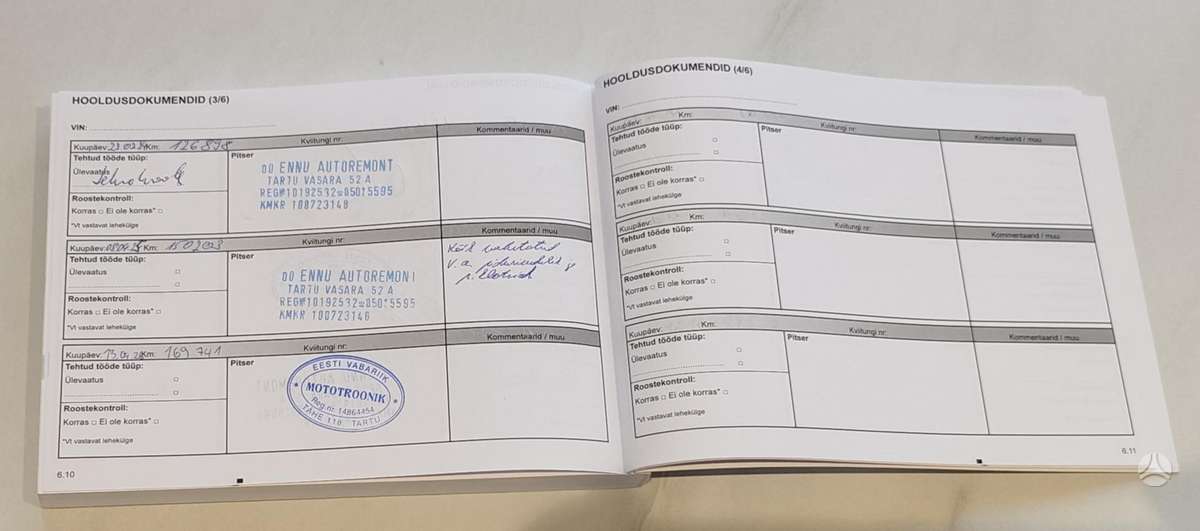 HOOLDUSDOKUMENDID (3/6)
VIN:
Kuupäev: Km: 126898 Kviitungi nr: Kommentaarid / muu
Tehtud tööde tüüp: Pitser
Ülevaatus
OÜ ENNU AUTOREMONT
TARTU VASARA 52A
REG#10192532 05015595
KMKR 100723148
Roostekontroll:
Korras Ei ole korras*
*Vt vastavat lehekülge
Kuupäev: Km: 150203 Kviitungi nr: Kommentaarid / muu
Tehtud tööde tüüp: Pitser
Ülevaatus
OÜ ENNU AUTOREMONT
TARTU VASARA 52A
REG#10192532 050*5595
KMKR 100723146
v.a.
Roostekontroll:
Korras Ei ole korras*
*Vt vastavat lehekülge
Kuupäev: Km: 169 741 Kviitungi nr: Kommentaarid / muu
Tehtud tööde tüüp: Pitser
Ülevaatus
EESTI VABARIIK
MOTOTROONIK
Reg.nr. 14864454
TÄHE 118 TARTU
Roostekontroll:
Korras Ei ole korras*
*Vt vastavat lehekülge
6.10
HOOLDUSDOKUMENDID (4/6)
VIN:
Kuupäev: Km: Kviitungi nr: Kommentaarid / muu
Tehtud tööde tüüp: Pitser
Ülevaatus
Roostekontroll:
Korras Ei ole korras*
*Vt vastavat lehekülge
Kuupäev: Km: Kviitungi nr: Kommentaarid / muu
Tehtud tööde tüüp: Pitser
Ülevaatus
Roostekontroll:
Korras Ei ole korras*
*Vt vastavat lehekülge
Kuupäev: Km: Kviitungi nr: Kommentaarid / muu
Tehtud tööde tüüp: Pitser
Ülevaatus
Roostekontroll:
Korras Ei ole korras*
*Vt vastavat lehekülge
6.11